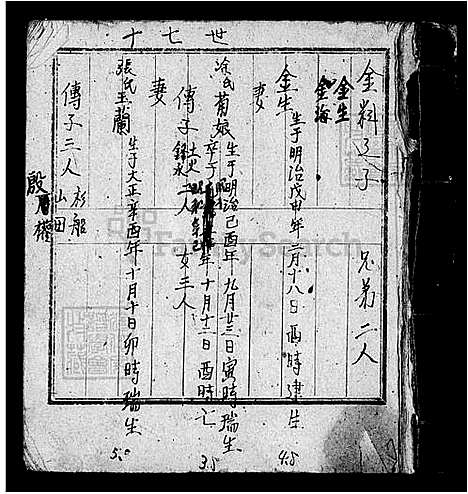 世七十
金料之子 兄弟二人
金生
金海
金生 生于明治戊申年二月十八日酉時建生
妻
凃氏菊娘 生于明治己酉年九月廿三日寅時瑞生
卒于昭和辛巳年十月十二日酉時亡
傳子二人 女三人
土火
錦永
妻
張氏玉蘭 生于大正辛酉年十月十日卯時瑞生
傳子三人
彬船
山田
殷權
4.5
3.5
5.0
FamilySearch